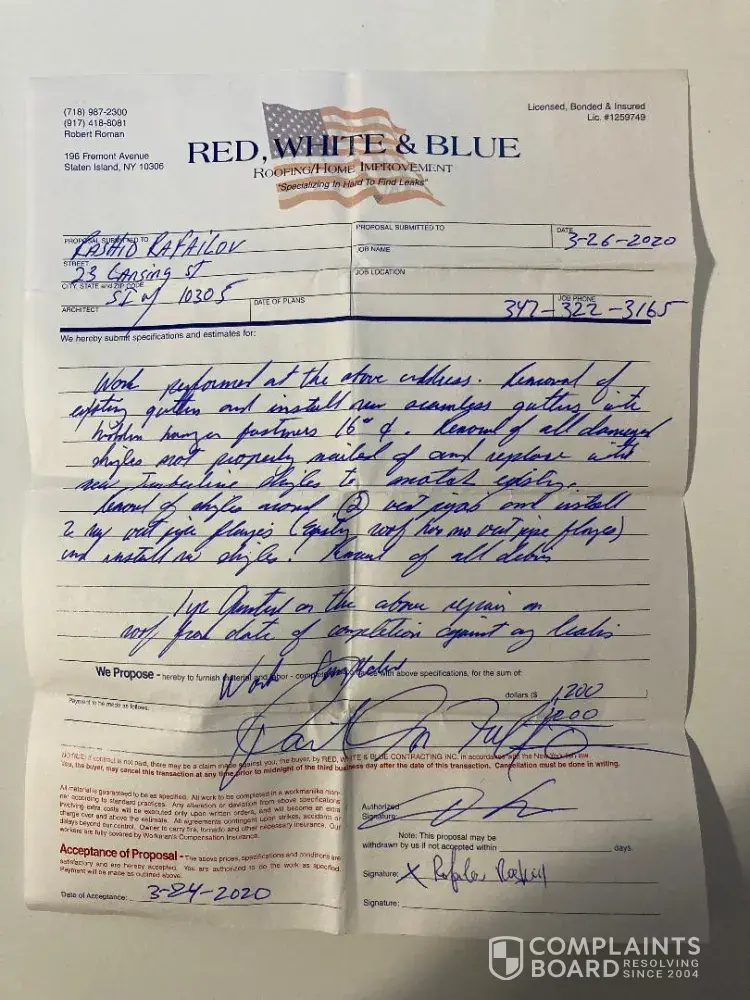 (718) 987-2300
(917) 418-8081
Robert Roman
196 Fremont Avenue
Staten Island, NY 10306
Licensed, Bonded & Insured
Lic. #1259749
RED, WHITE & BLUE
ROOFING/HOME IMPROVEMENT
"Specializing In Hard To Find Leaks"
PROPOSAL SUBMITTED TO
RASHID RAFAILOV
PROPOSAL SUBMITTED TO
DATE
3-26-2020
STREET
23 Lansing St
JOB NAME
CITY, STATE and ZIP CODE
SI NY 10305
JOB LOCATION
ARCHITECT
DATE OF PLANS
JOB PHONE
347-322-3165
We hereby submit specifications and estimates for:
Work performed at the above address. Removal of
existing gutters and install new seamless gutters with
hidden hanger fastners 16" . Removal of all damaged
shigles not properly nailed and replace with
new Timberline shigles to match existing.
Removal of shigles around (2) vent pipes and install
2 new vent pipe flanges (existing roof has no vent pipe flanges)
and install new shigles. Removal of all debris
1 yr on the above repair on
roof from date of completion against any leaks
Work Completed
We Propose - hereby to furnish material and labor - complete with above specifications, for the sum of:
dollars ($ 1,200
Payment to be made as follows:
Paid In Full
NOTICE: If contract is not paid, there may be a claim made against you, the buyer, by RED, WHITE & BLUE CONTRACTING INC. in accordance with the New York lien law.
You, the buyer, may cancel this transaction at any time prior to midnight of the third business day after the date of this transaction. Cancellation must be done in writing.
All material is guaranteed to be as specified. All work to be completed in a workmanlike man-
ner according to standard practices. Any alteration or deviation from above specifications
involving extra costs will be executed only upon written orders, and will become an extra
charge over and above the estimate. All agreements contingent upon strikes, accidents or
delays beyond our control. Owner to carry fire, tornado and other necessary insurance. Our
workers are fully covered by Workman's Compensation Insurance.
Authorized
Signature:
Note: This proposal may be
withdrawn by us if not accepted within days.
Acceptance of Proposal - The above prices, specifications and conditions are
satisfactory and are hereby accepted. You are authorized to do the work as specified.
Payment will be made as outlined above.
Signature: X
Date of Acceptance: 3-24-2020
Signature:
COMPLAINTS
BOARD RESOLVING
SINCE 2004